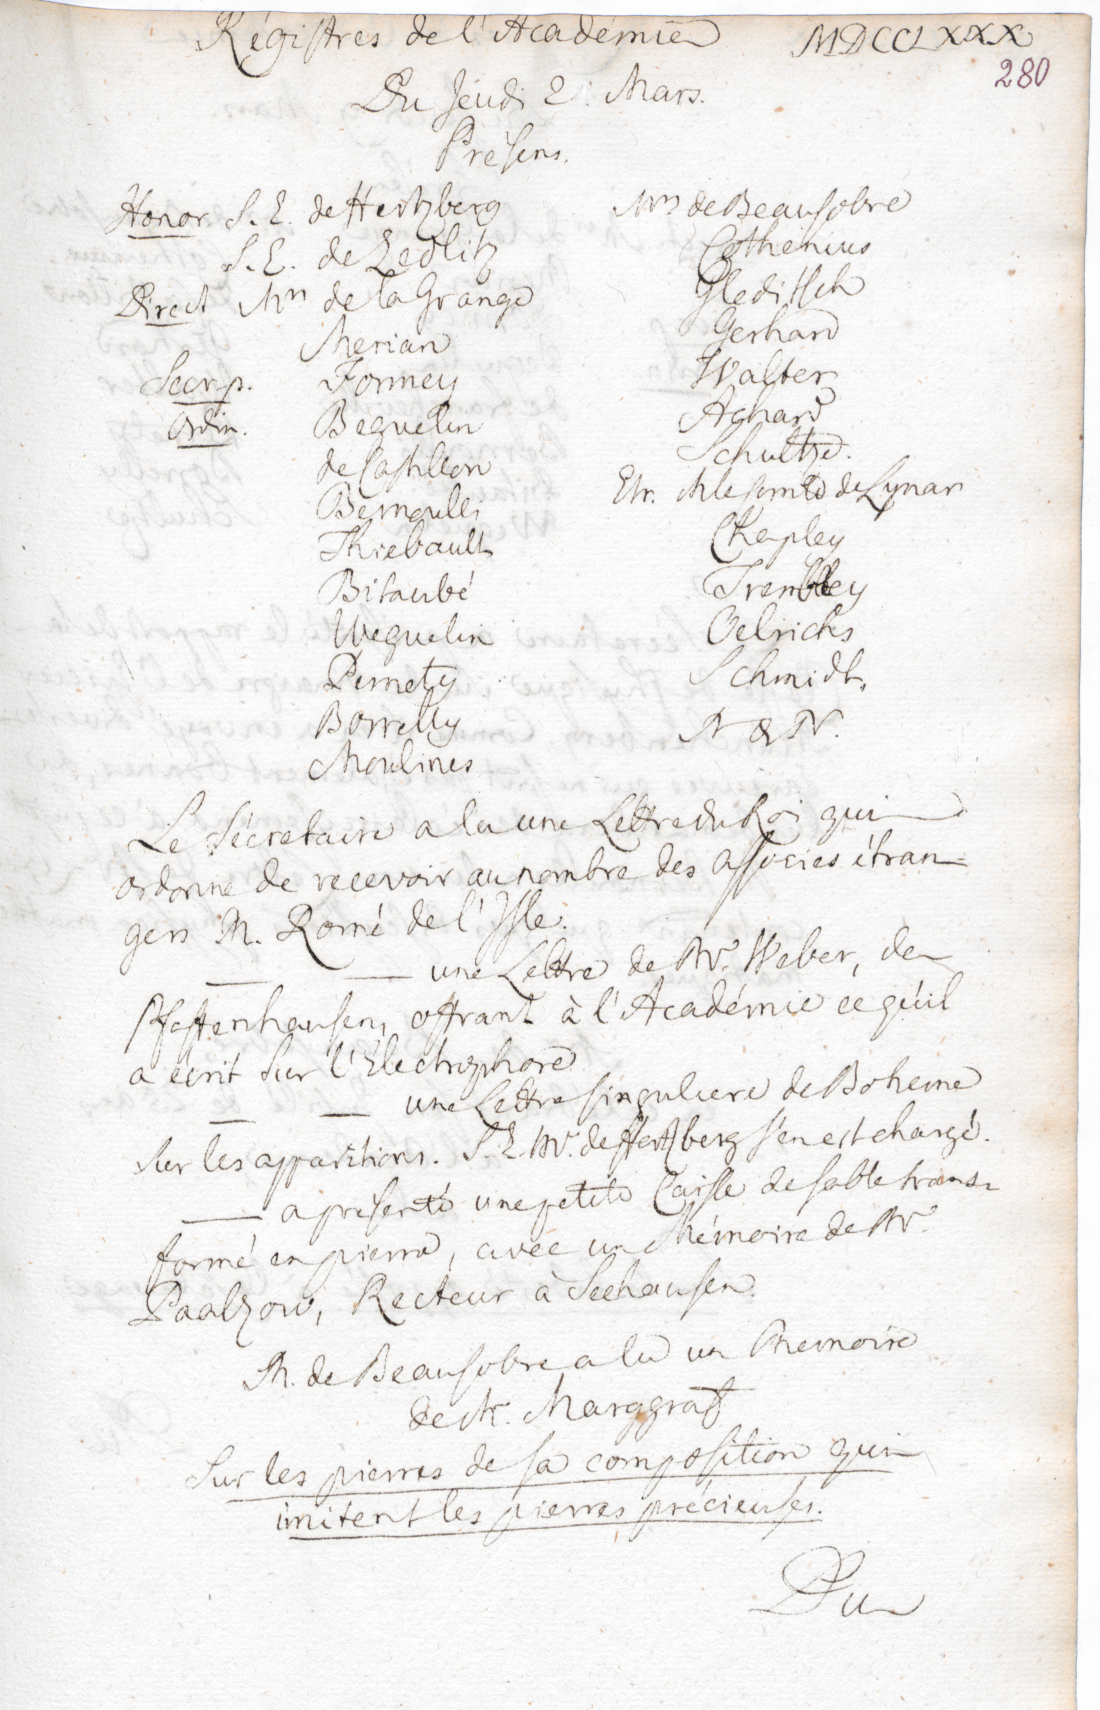 Régistres de l'Académie MDCCLXXX
280
Du Jeudi 2. Mars.
Présens.
Honor. S. E. de Hertzberg
S. E. de Zedlitz
Direct Mrs de la Grange
Merian
Secr. p. Formey
Ordin. Beguelin
de Castillon
Bernoulli
Thiebault
Bitaubé
Weguelin
Pernety
Borrelly
Moulines
Mrs de Beausobre
Cothenius
Gleditsch
Gerhard
Walter
Achard
Schultze.
Etr. M le Comte de Lynar
Chepley
Trembley
Oelrichs
Schmidt.
N & N.
Le Sécretaire a lu une Lettre du Roi qui
ordonne de recevoir au nombre des associes étran=
gers M. Romé de l'Isle.
— — une Lettre de Mr. Weber, de
Pfaffenhausen, offrant à l'Académie ce qu'il
a écrit sur l'Electrophore
— — une Lettre singuliere de Boheme
sur les apparitions. S. E. Mr. de Hertzberg s'en est chargé.
— a presenté une petite Caisse de sable trans=
formé en pierre, avec un Mémoire de Mr.
Paalzow, Recteur à Seehausen.
M. de Beausobre a lu un Memoire
de Mr. Marggraf
Sur les pierres de sa composition qui
imitent les pierres précieuses.
Du